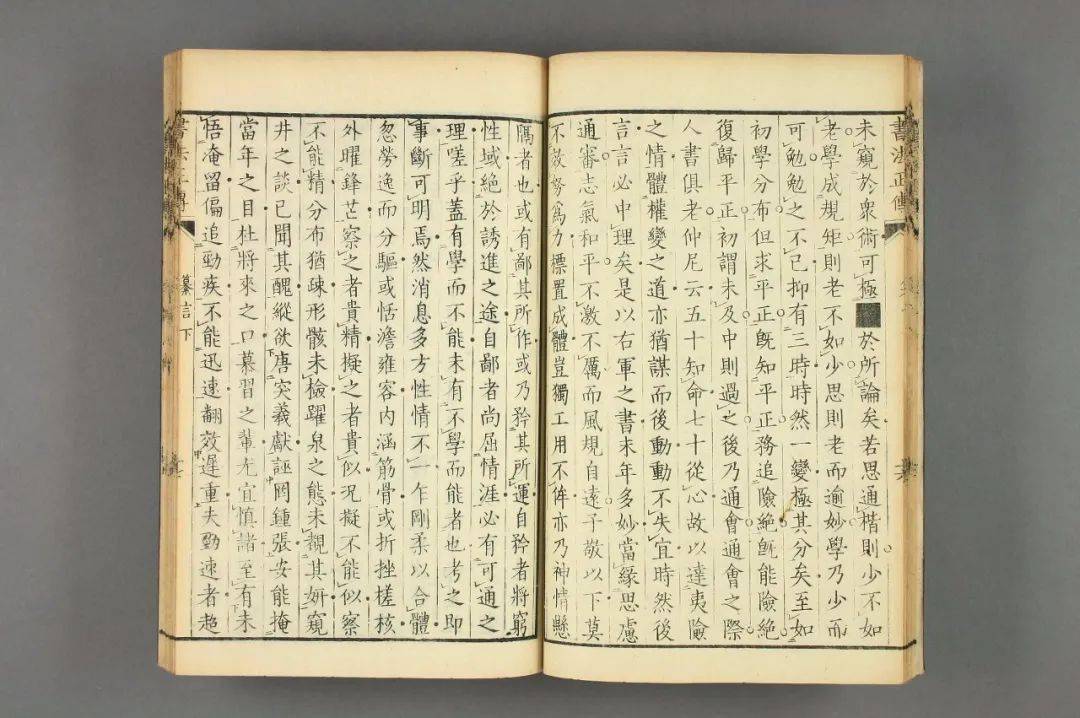 書法正傳
未窺於衆術可極於所論矣若思通楷則少不如
老學成規矩則老不如少思則老而逾妙學乃少而
可勉勉之不已抑有三時時然一變極其分矣至如
初學分布但求平正旣知平正務追險絶旣能險絶
復歸平正初謂未及中則過之後乃通會通會之際
人書俱老仲尼云五十知命七十從心故以達夷險
之情體權變之道亦猶謀而後動動不失宜時然後
言言必中理矣是以右軍之書末年多妙當緣思慮
通審志氣和平不激不厲而風規自遠子敬以下莫
不敀努爲力標置成體豈獨工用不侔亦乃神情懸
隅者也或有鄙其所作或乃矜其所運自矜者將窮
性域絶於誘進之途自鄙者尚屈情涯必有可通之
理嗟乎蓋有學而不能未有不學而能者也考之即
事斷可明焉然消息多方性情不一乍剛柔以合體
忽勞逸而分驅或恬澹雍容内涵筋骨或折挫槎枿
外曜鋒芒察之者貴精擬之者貴似况擬不能似察
不能精分布猶疎形骸未檢躍泉之態未覩其妍窺
井之談已聞其醜縱欲唐突羲獻誣罔鍾張安能掩
當年之目杜將來之口慕習之輩尤宜慎諸至有未
悟淹留偏追勁疾不能迅速翻效遲重夫勁速者超
書法正傳
纂言下